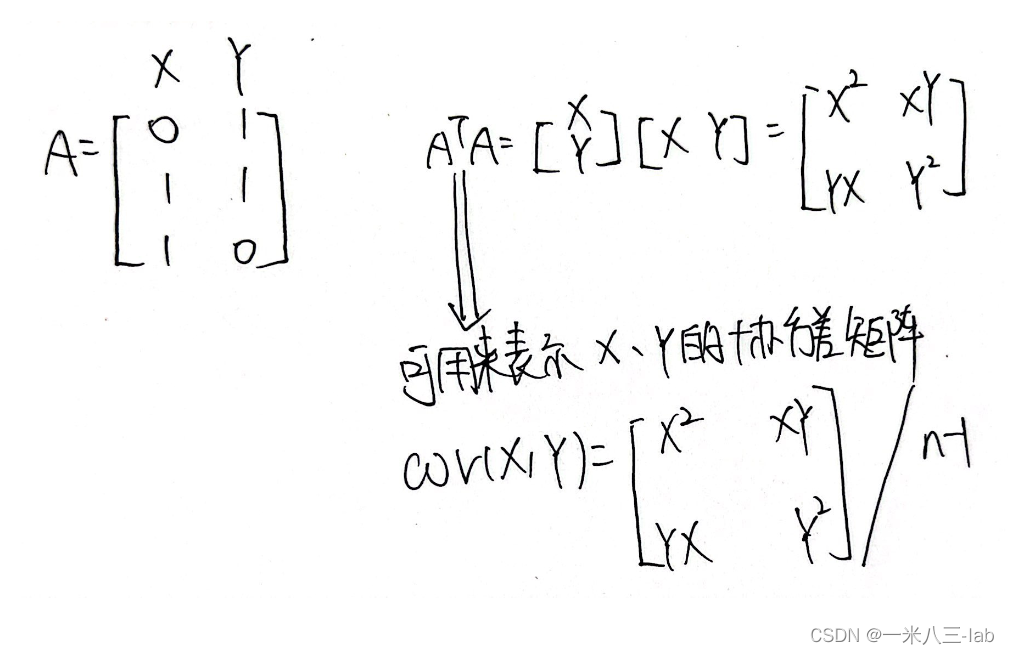 X Y
A= [ 0 1
1 1
1 0 ]
AᵀA= [ X
Y ] [ X Y ] = [ X² XY
YX Y² ]
可用来表示 X、Y的协方差矩阵
cov(X,Y)= [ X² XY
YX Y² ] / n-1
CSDN @一米八三-lab